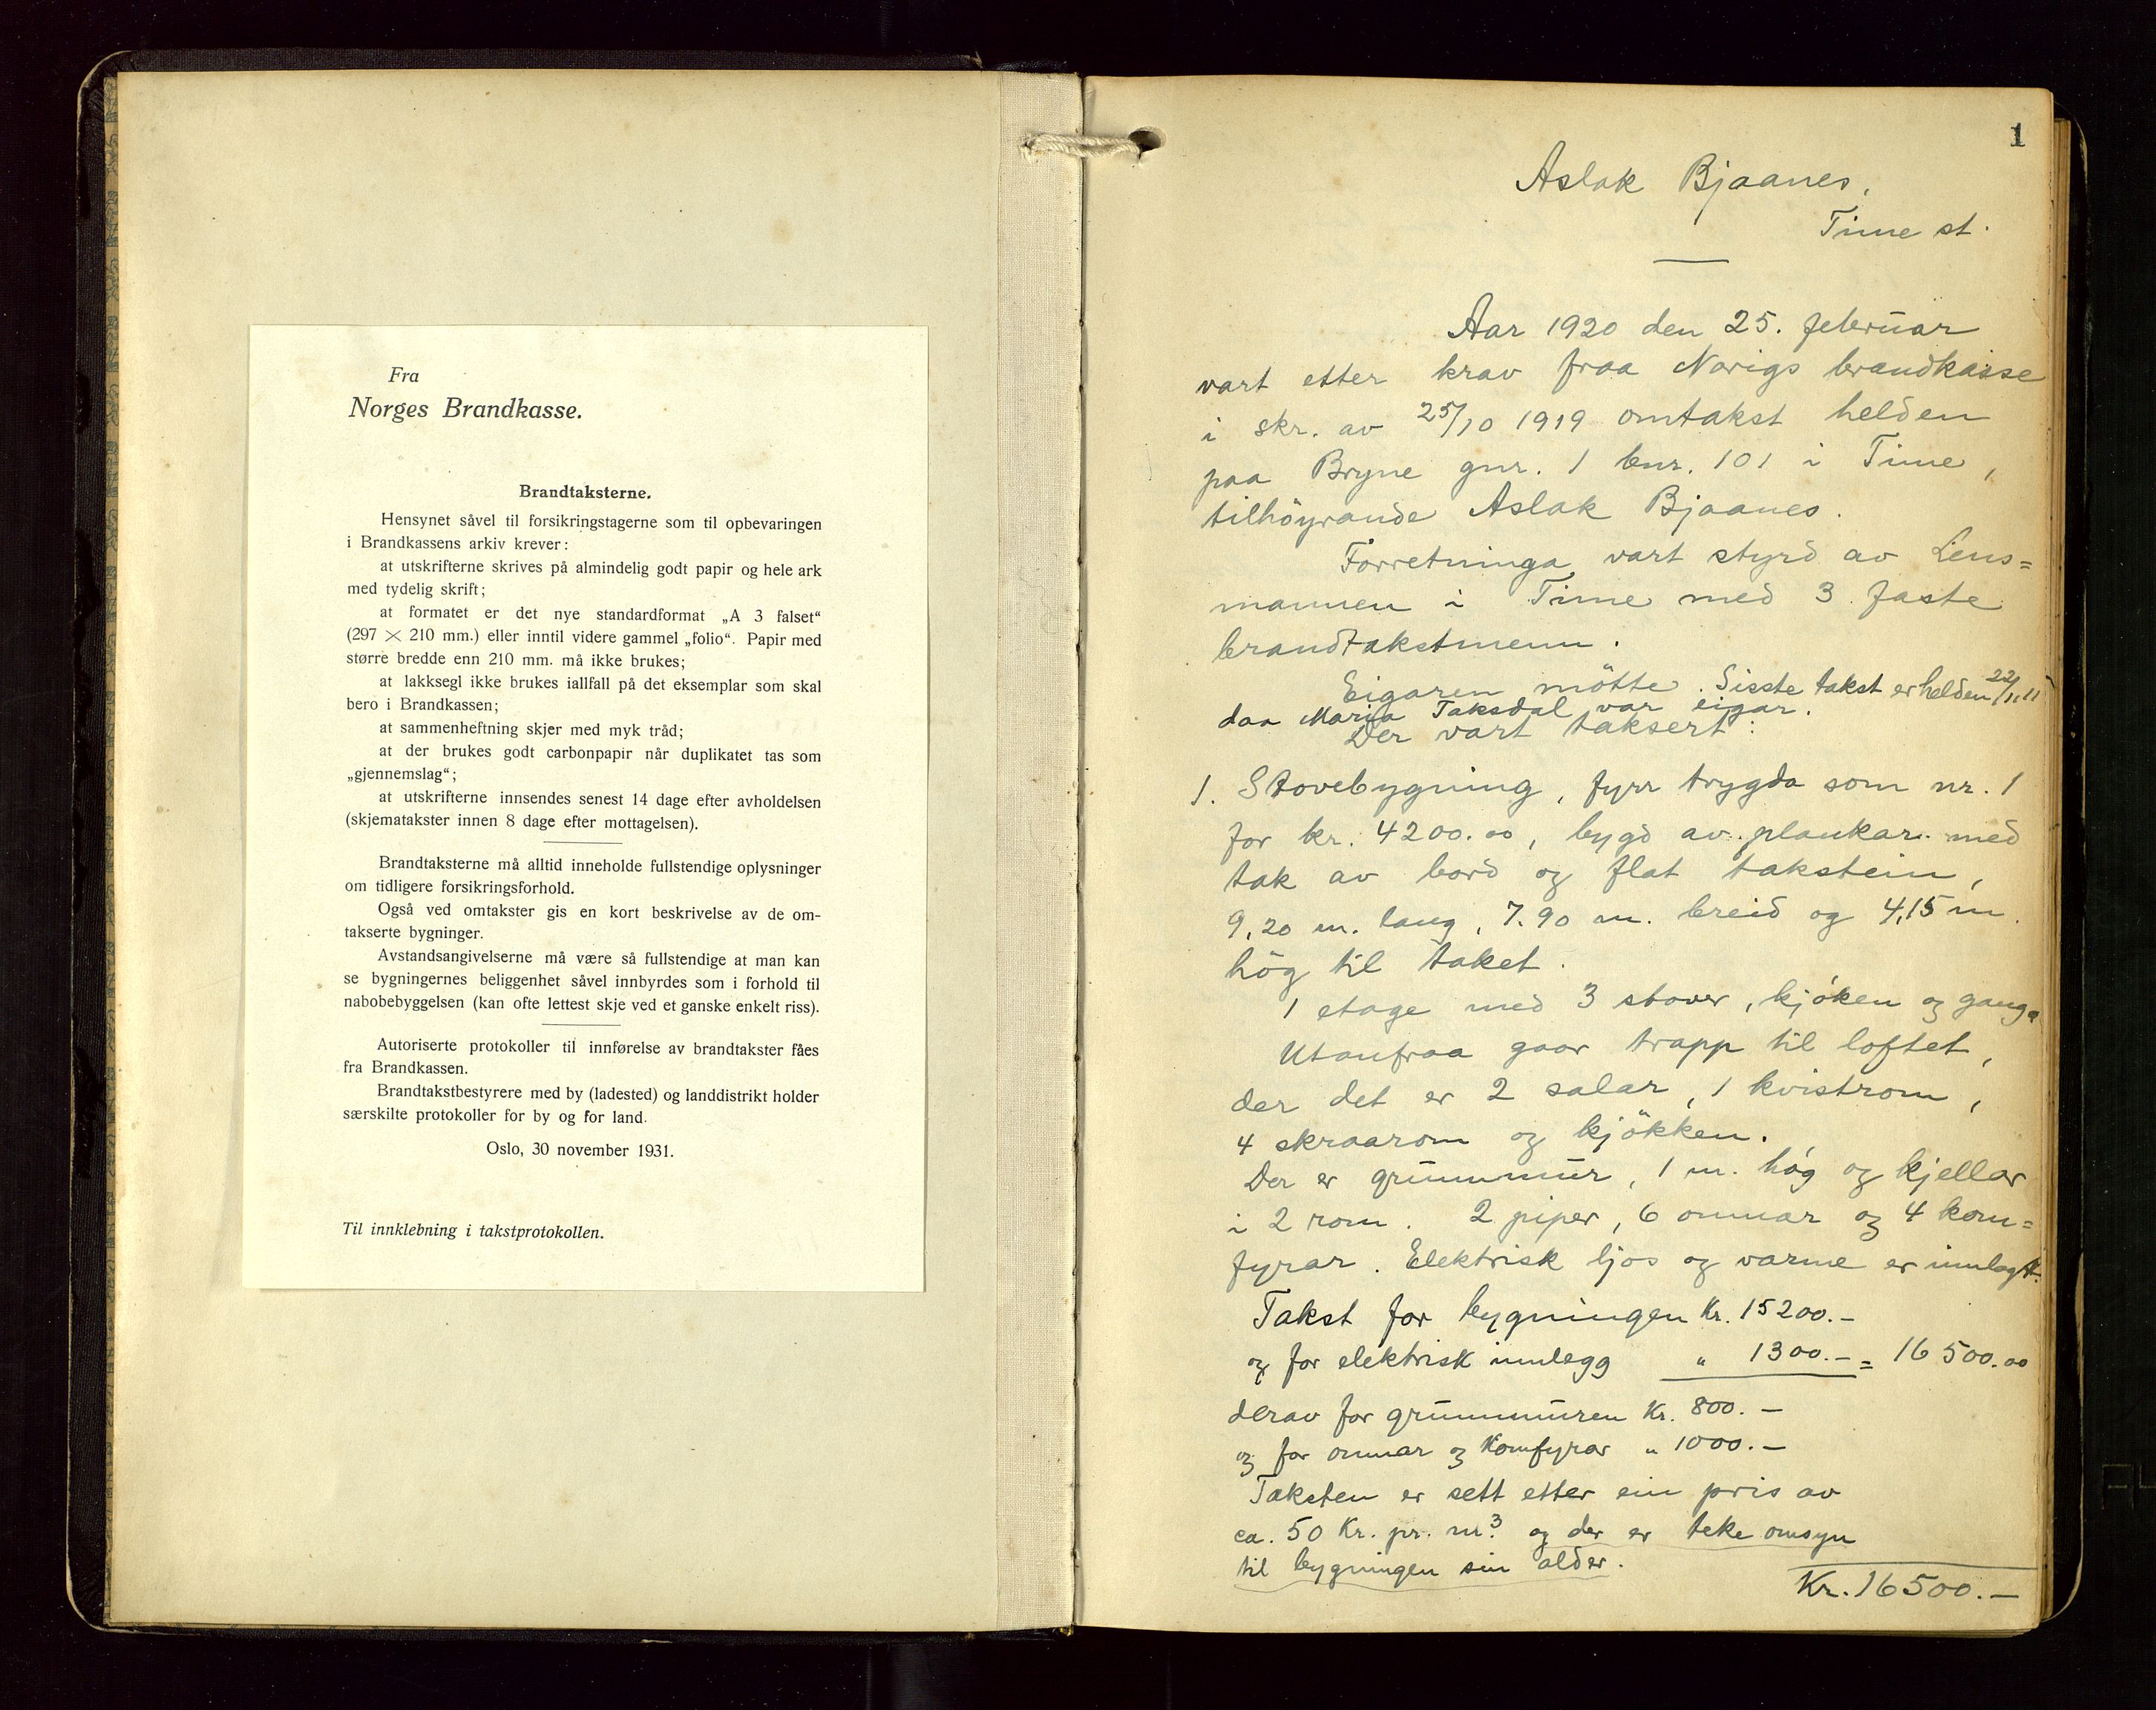 Fra
Norges Brandkasse.
Brandtaksterne.
Hensynet såvel til forsikringstagerne som til opbevaringen
i Brandkassens arkiv krever:
at utskrifterne skrives på almindelig godt papir og hele ark
med tydelig skrift;
at formatet er det nye standardformat „A 3 falset“
(297 × 210 mm.) eller inntil videre gammel „folio“. Papir med
større bredde enn 210 mm. må ikke brukes;
at lakksegl ikke brukes iallfall på det eksemplar som skal
bero i Brandkassen;
at sammenheftning skjer med myk tråd;
at der brukes godt carbonpapir når duplikatet tas som
„gjennemslag“;
at utskrifterne innsendes senest 14 dage efter avholdelsen
(skjematakster innen 8 dage efter mottagelsen).
Brandtaksterne må alltid inneholde fullstendige oplysninger
om tidligere forsikringsforhold.
Også ved omtakster gis en kort beskrivelse av de om-
takserte bygninger.
Avstandsangivelserne må være så fullstendige at man kan
se bygningernes beliggenhet såvel innbyrdes som i forhold til
nabobebyggelsen (kan ofte lettest skje ved et ganske enkelt riss).
Autoriserte protokoller til innførelse av brandtakster fåes
fra Brandkassen.
Brandtakstbestyrere med by (ladested) og landdistrikt holder
særskilte protokoller for by og for land.
Oslo, 30 november 1931.
Til innklebning i takstprotokollen.
1
Aslak Bjaanes,
Time st.
Aar 1920 den 25. februar
vart etter krav fraa Norigs brandkasse
i skr. av 25/10 1919 omtakst helden
paa Bryne gnr. 1 bnr. 101 i Time,
tilhöyrande Aslak Bjaanes.
Forretninga vart styrd av Lens=
mannen i Time med 3 faste
brandtakstmenn.
Eigaren mötte. Sisste takst er helden 22/11.11
daa Maria Taksdal var eigar.
Der vart taksert:
1. Stovebygning, fyrr trygda som nr. 1
for kr. 4200.00, bygd av plankar med
tak av bord og flat takstein,
9,20 m. lang, 7.90 m. breid og 4,15 m.
hög til taket.
1 etage med 3 stover, kjöken og gang.
Utanfraa gaar trapp til loftet,
der det er 2 salar, 1 kvistrom,
4 skraarom og kjökken.
Der er grunnmur, 1 m. hög og kjellar
i 2 rom. 2 piper, 6 omnar og 4 kom=
fyrar. Elektrisk ljos og varme er innlagt.
Takst for bygningen Kr. 15200.-
og for elektrisk innlegg " 1300.- = 16500.00
derav for grunnmuren Kr. 800.-
og for omnar og Komfyrar " 1000.-
Taksten er sett etter ein pris av
ca. 50 Kr. pr. m³ og der er teke omsyn
til bygningen sin alder.
Kr. 16500.-